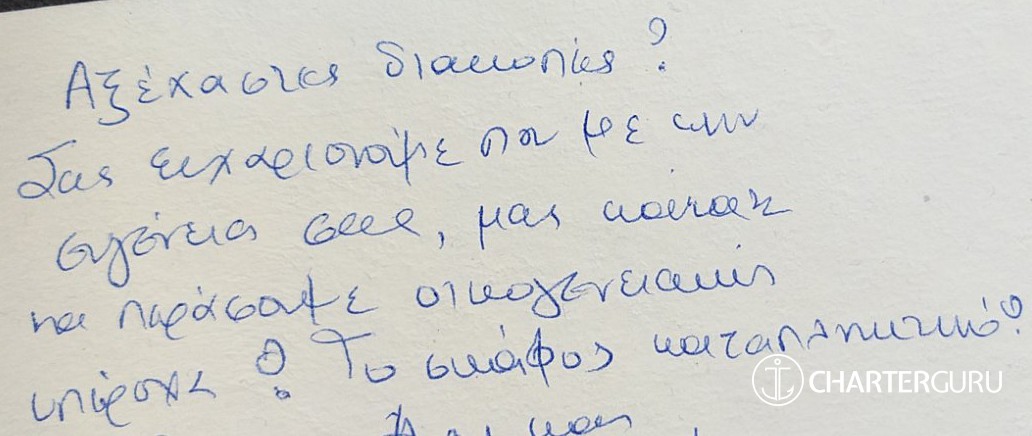 Αξέχαστες διακοπές!
Σας ευχαριστούμε που με την
ευγένεια σας, μας κάνατε
να περάσουμε οικογενειακώς
υπέροχα! Το σκάφος καταπληκτικό!
και
CHARTERGURU